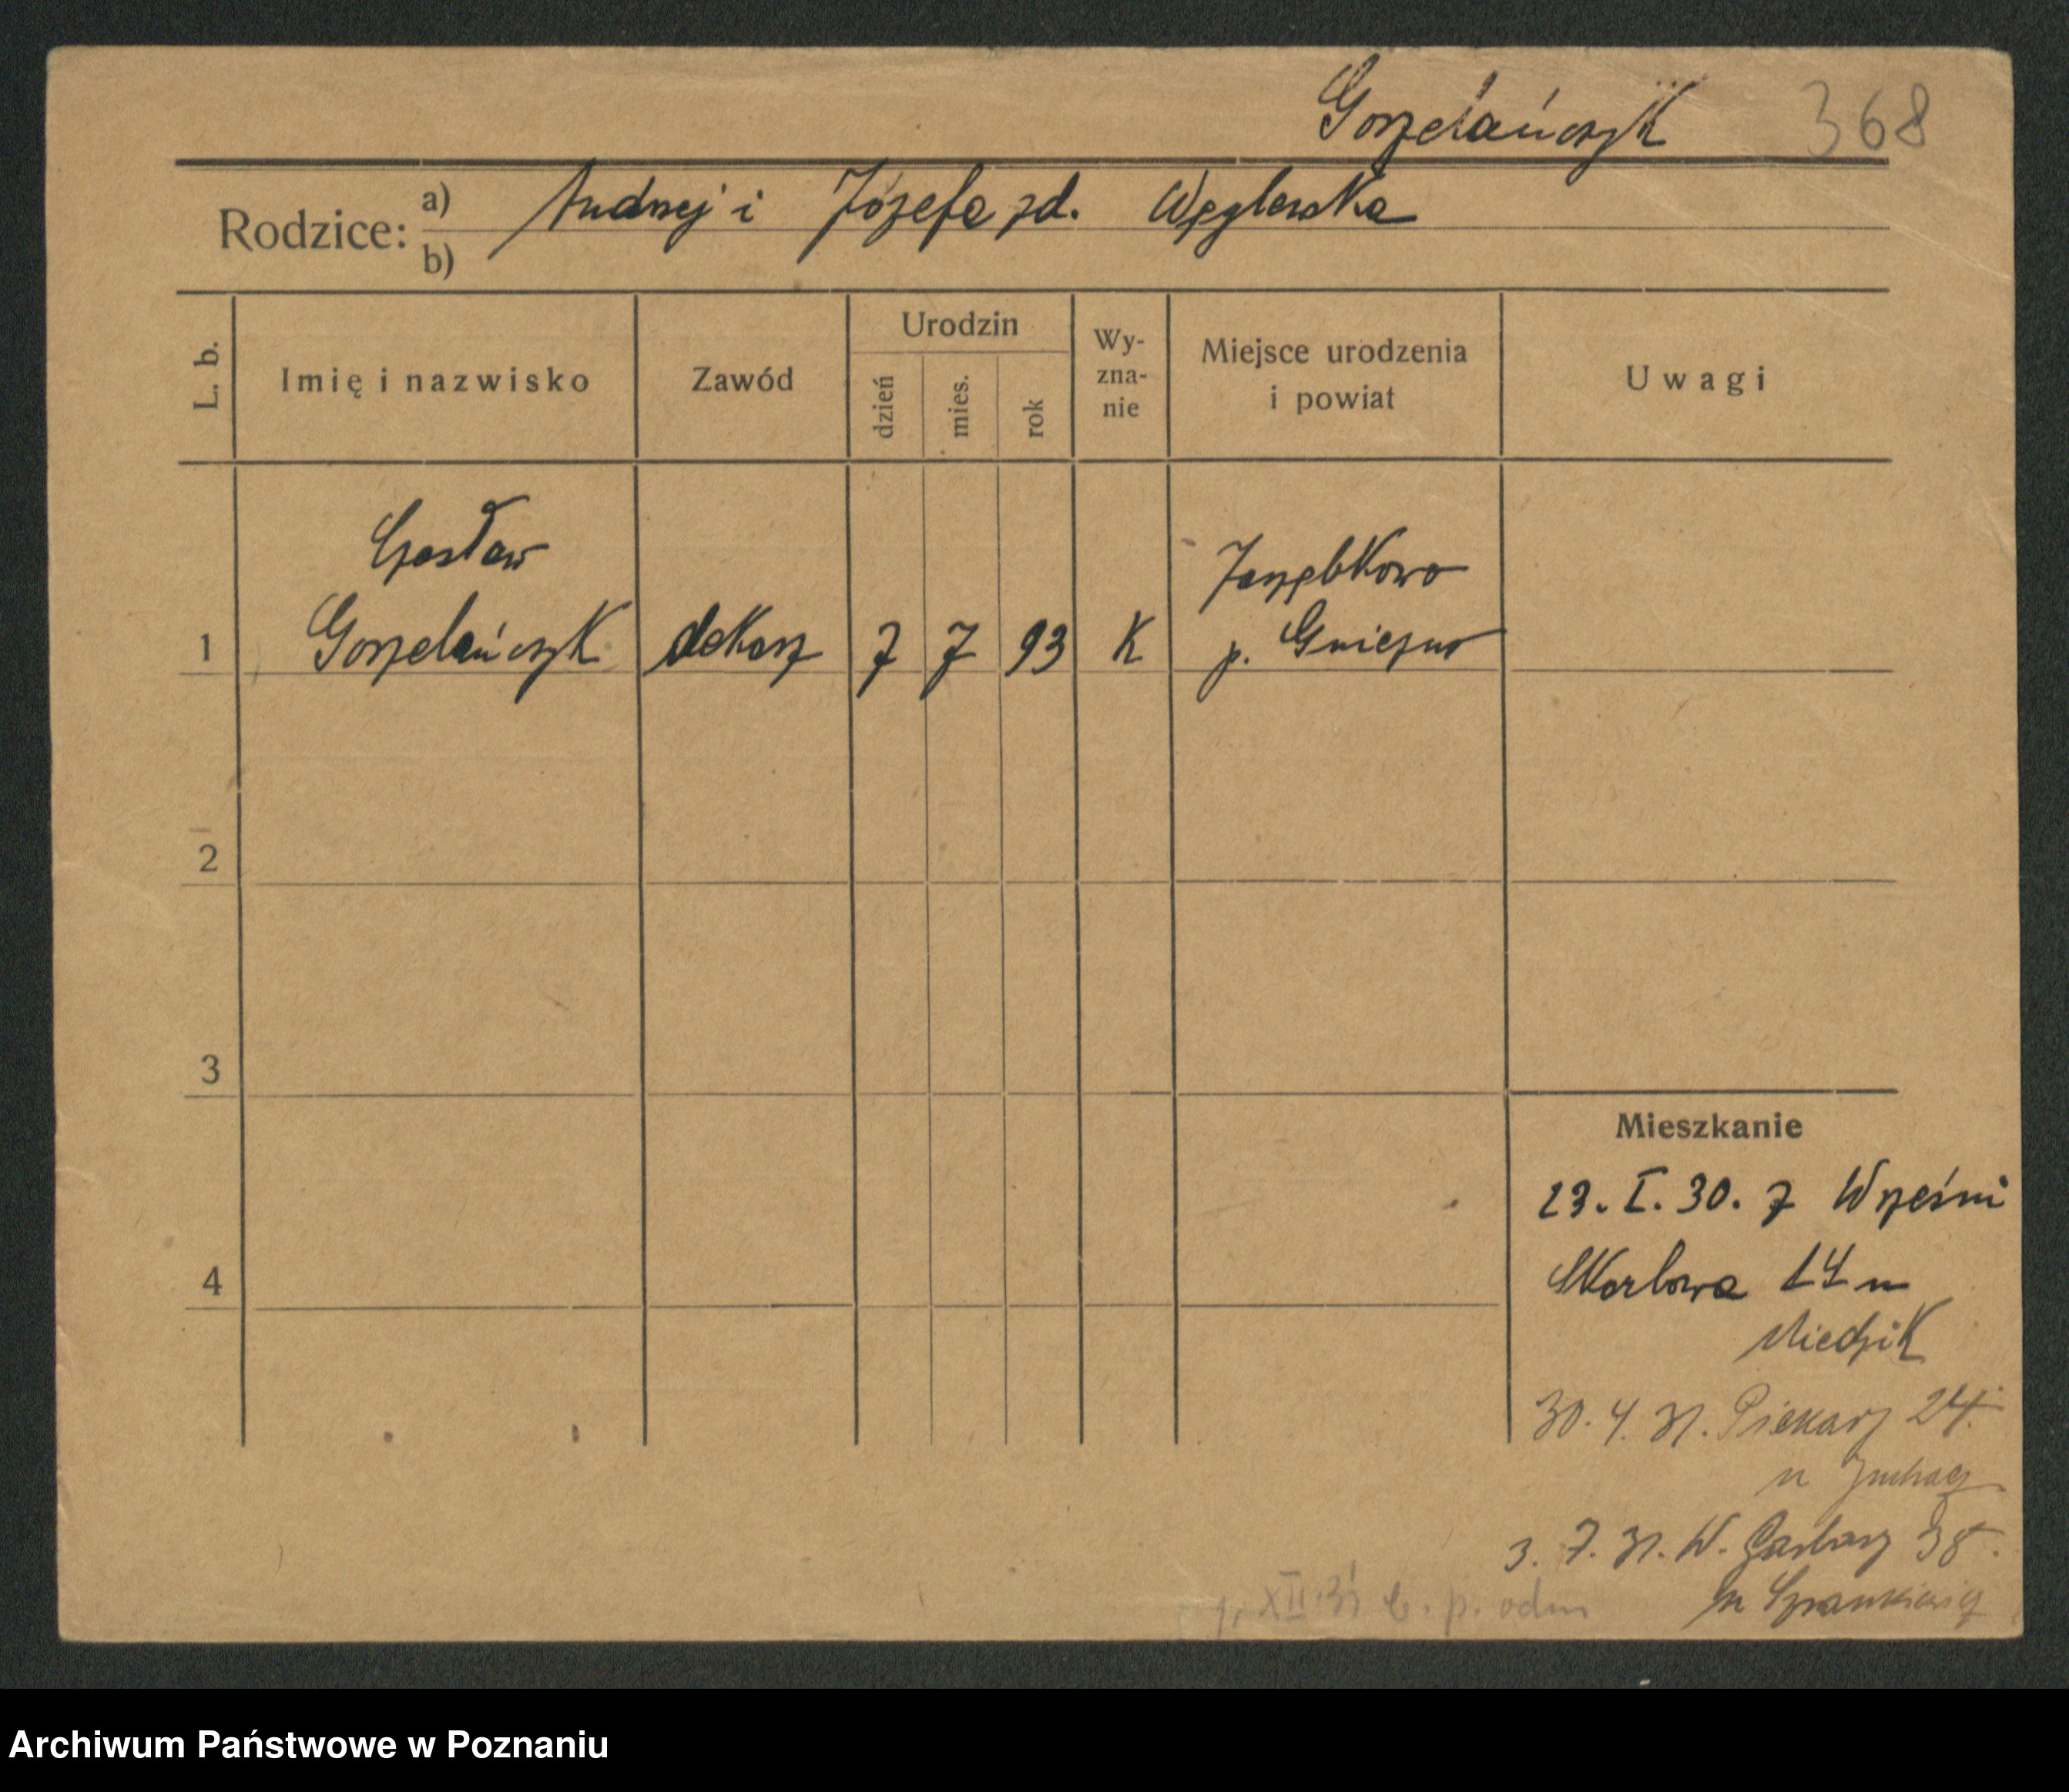 Gorzelańczyk 368
Rodzice: a) Andrzej i Józefa zd. Węglerska
b)
L. b. Imię i nazwisko Zawód Urodzin dzień mies. rok Wy-zna-nie Miejsce urodzenia i powiat Uwagi
Czesław Jarząbkowo
1 Gorzelańczyk dekarz 7 7 93 K p. Gniezno
2
3
Mieszkanie
23. I. 30. z Wrześni
4 Skarbowa 14 u
Miedzik
30. 4. 31. Piekary 24.
u
3. 7. 31. W. Garbary 38.
1. XII. 31 b. p. odm u
Archiwum Państwowe w Poznaniu